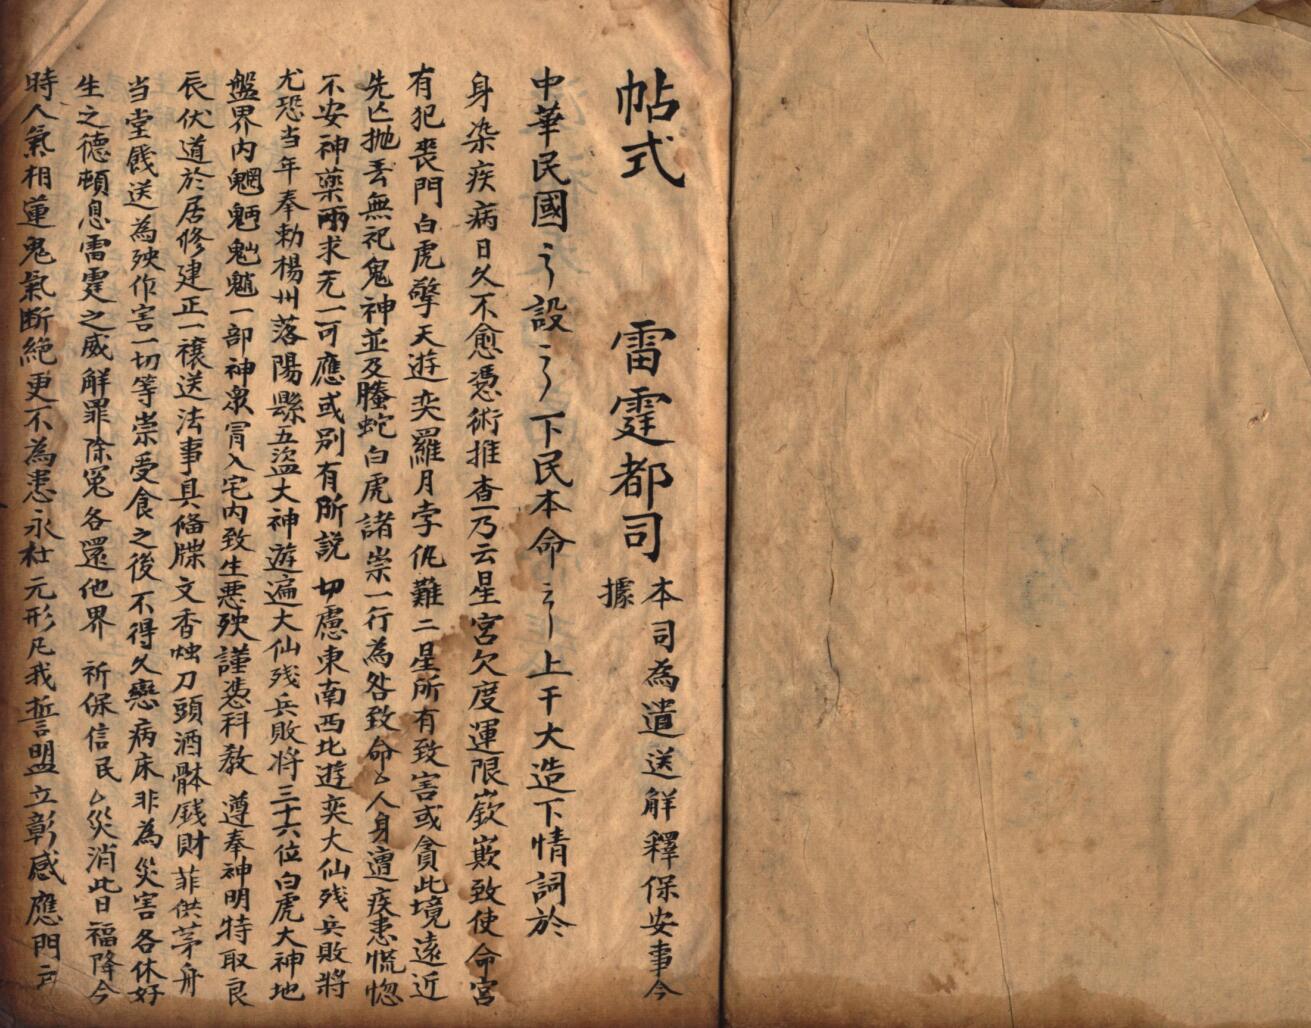 帖式
雷霆都司
本司為遣送解釋保安事今
據
中華民國　設　下民本命　上干大造下情詞於
身染疾病日久不愈憑術推查一乃云星宮欠度運限嶔嶔致使命宮
有犯喪門白虎擎天遊奕羅月孛仇難二星所有致害或貪此境遠近
先亡抛丟無祀鬼神並及螣蛇白虎諸祟一行為咎致命厶人身遭疾患慌惚
不安神藥兩求无一可應或別有所說切慮東南西北遊奕大仙残兵敗將
尤恐当年奉勅楊州落陽縣五盜大神遊遍大仙残兵敗将三十六位白虎大神地
盤界内魍魎魃魈一部神眾冐入宅内致生悪殃謹憑科教遵奉神明特取良
辰伏道於居修建正一禳送法事具俻牒文香烛刀頭酒酥錢財菲供茅舟
当堂餞送為殃作害一切等祟受食之後不得久戀病床非為災害各休好
生之德頓息雷霆之威解罪除冤各還他界祈保信民厶災消此日福降今
時人氣相蓮鬼氣断絶更不為患永杜元形凡我誓盟立彰感應門示